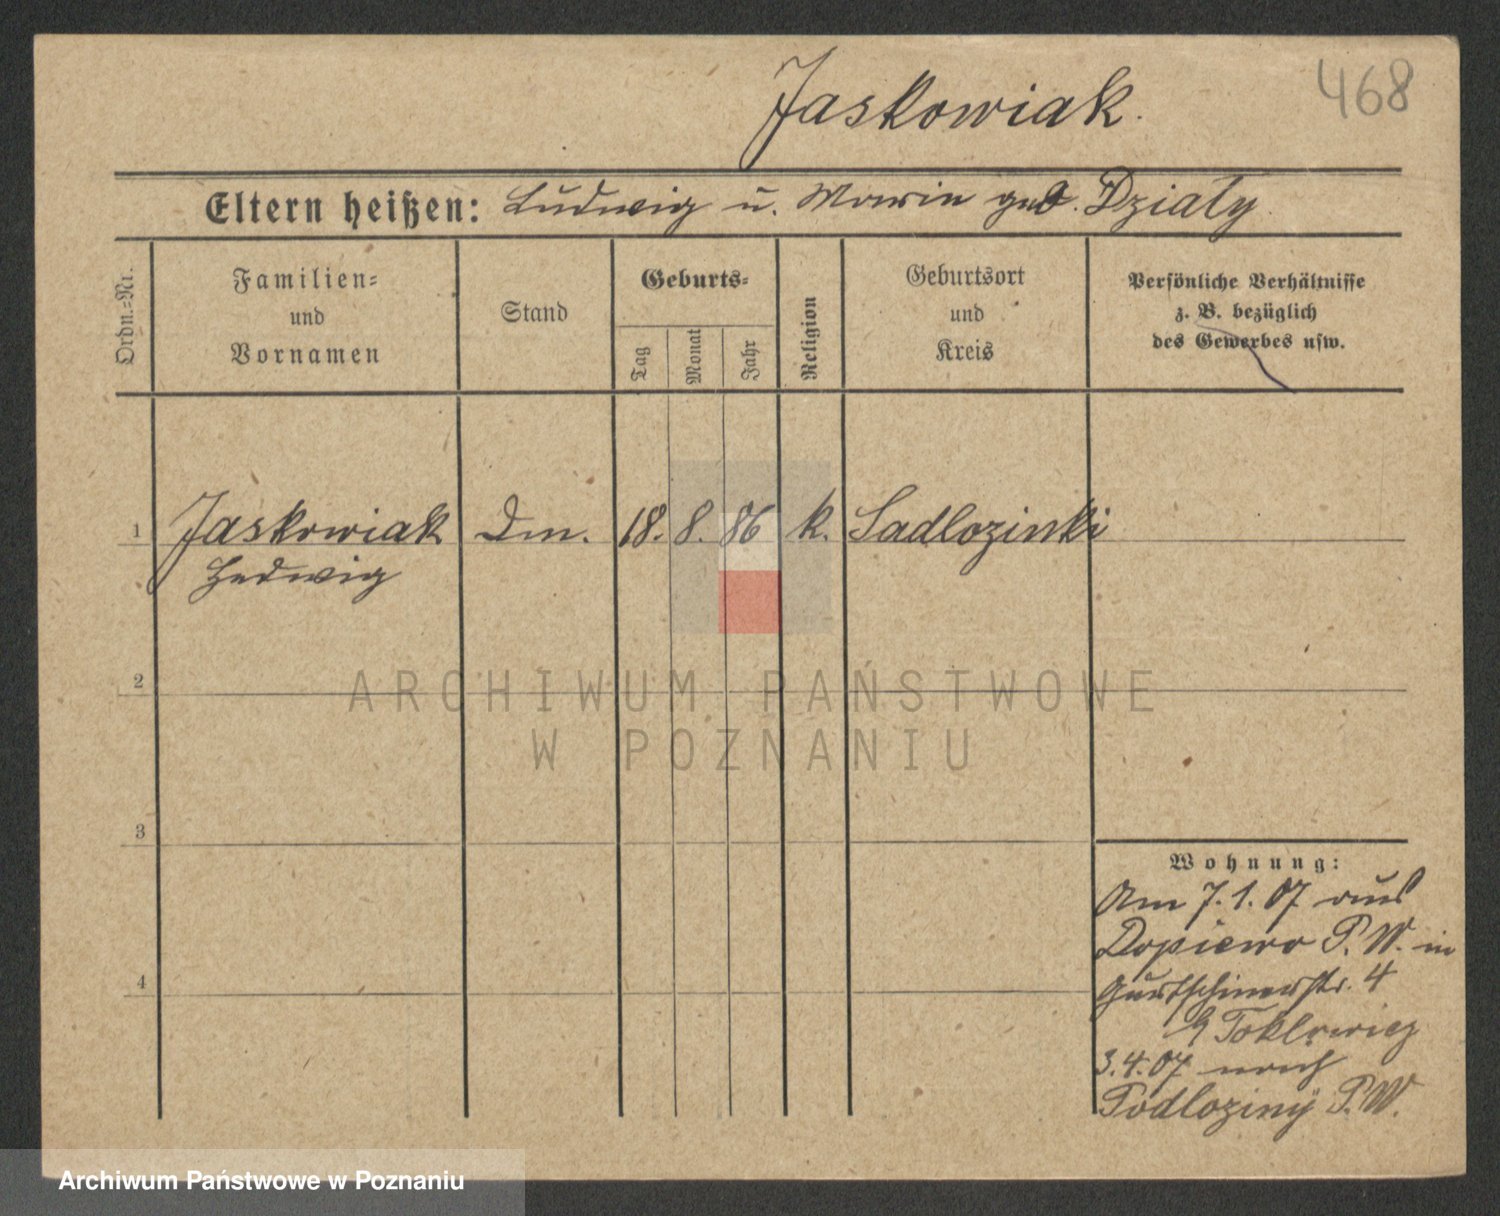 468
Jaskowiak.
Eltern heißen: Ludwig u. Marie geb. Dzialy
Ordn.=Nr.
Familien=
und
Vornamen
Stand
Geburts=
Tag
Monat
Jahr
Religion
Geburtsort
und
Kreis
Persönliche Verhältnisse
z. B. bezüglich
des Gewerbes usw.
1 Jaskowiak Dm. 18. 8. 86 k. Sadlozinki
Hedwig
2
ARCHIWUM PAŃSTWOWE
W POZNANIU
3
Wohnung:
Am 7.1.07 aus
Dopiewo P. W. in
Gurtschinerstr. 4
4
Toklewicz
3.4.07 nach
Podloziny P. W.
Archiwum Państwowe w Poznaniu